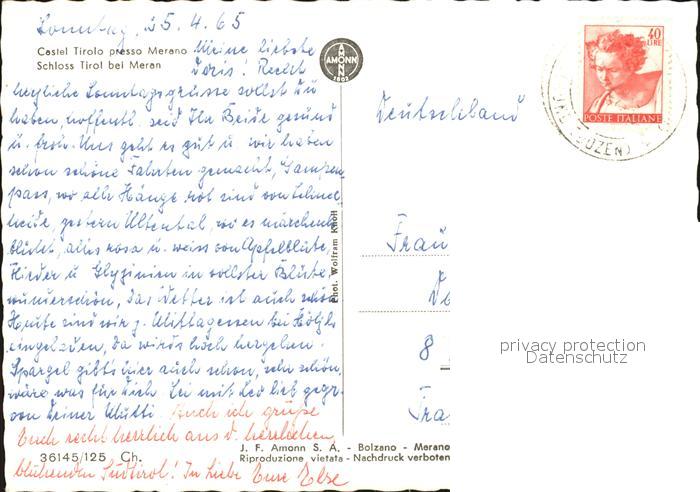 Sonntag, 25.4.65
Castel Tirolo presso Merano
Schloss Tirol bei Meran
Meine liebste
Doris! Recht
herzliche Sonntagsgrüsse sollst Du
haben, hoffentl. seid Ihr Beide gesund
u. froh. Uns geht es gut u. wir haben
schon schöne Fahrten gemacht, Gampen
pass, wo alle Hänge rot sind von
heide, gestern Ultental, wo es märchenh.
blüht, alles rosa u. weiss von Apfelblüte,
Flieder u. Glyzinien in vollster Blüte,
wunderschön, das Wetter ist auch schön
Heute sind wir z. Mittagessen bei
eingeladen, da wirds hoch hergehen.
Spargel gibts hier auch schon, sehr schön,
wäre was für Dich. Sei mit Leo lieb gegr.
von Deiner Mutti. Auch ich grüße
Euch recht herzlich aus d. herrlichen,
blühenden Südtirol! In Liebe Eure Else
36145/125 Ch.
AMONN
1802
Phot. Wolfram Knoll
J. F. Amonn S. A. - Bolzano - Merano
Riproduzione vietata - Nachdruck verboten
40
LIRE
POSTE ITALIANE
(BOZEN)
Deutschland
Frau
8
Fra
privacy protection
Datenschutz